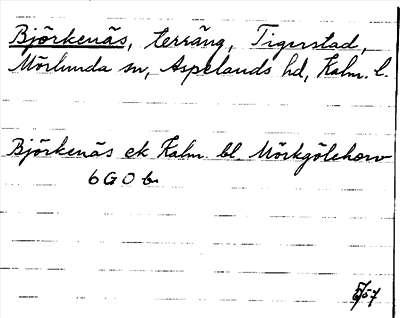 Björkenäs, terräng, Tigerstad,
Mörlunda sn, Aspelands hd, Kalm. l.
Björkenäs ek Kalm. bl. Mörkgölehorv
6G0b